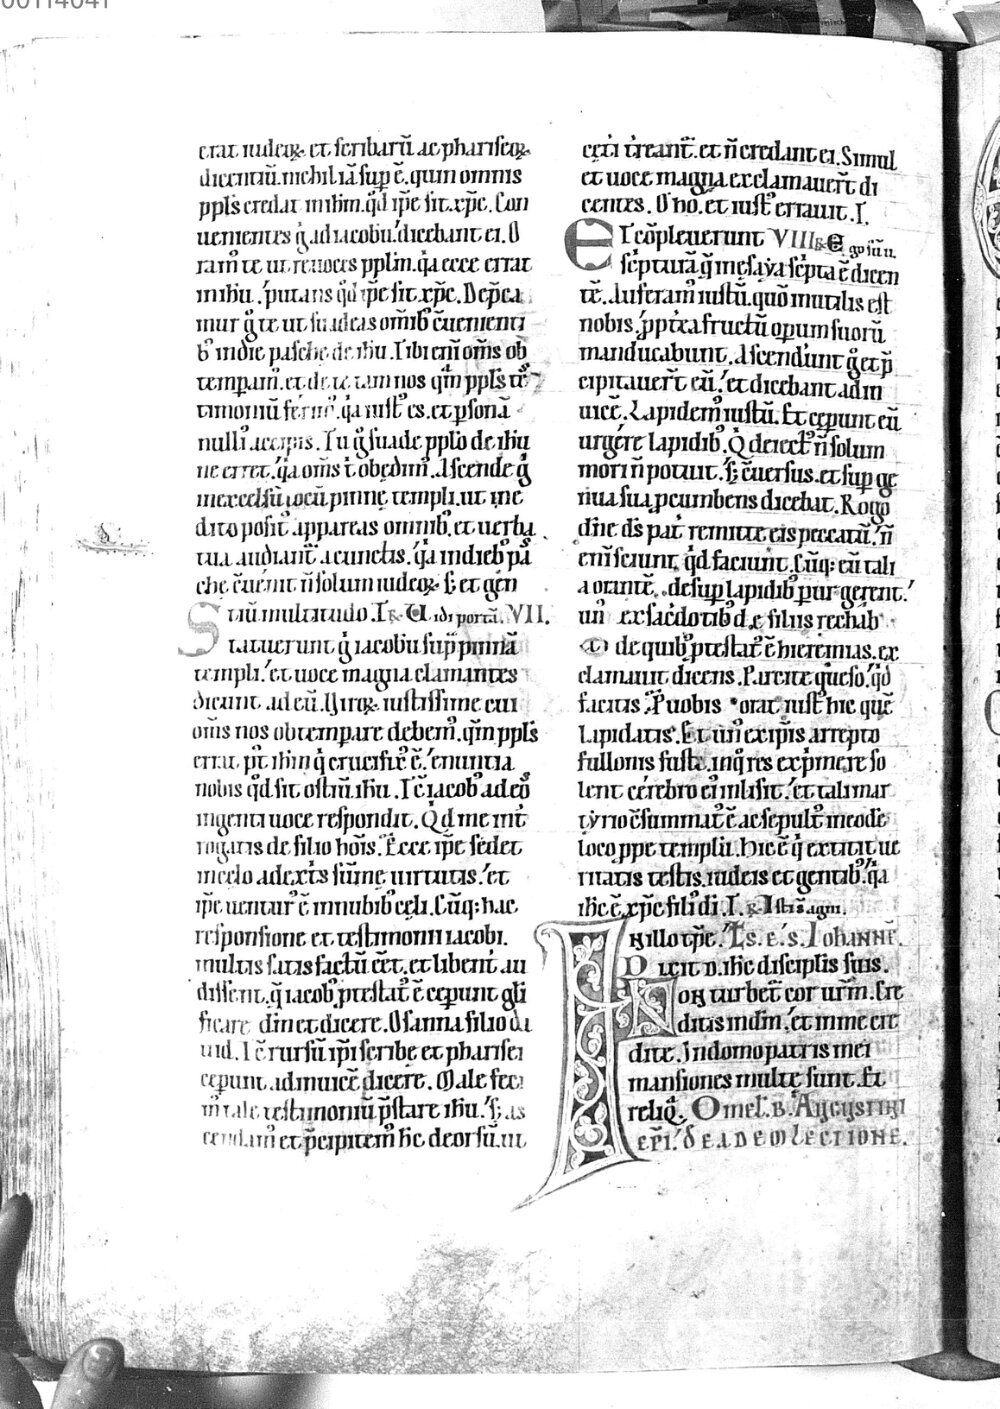 00114041
erat iudeoꝝ et scribarū ac phariseoꝝ
dicentiū. nichil iā sup ē. quin omnis
ppl̄s credat in ihm. qd̄ ip̄e sit xp̄c. Con
uenientes g̊ ad iacobū dicebant ei. O
ram̄ te ut reuoces pplm̄. q̄a ecce errat
in ihū. putans qd̄ ip̄e sit xp̄c. Dep̄ca
mur g̊ te ut suadeas om̄ib; c̄uenienti
b; in die pasche de ihū. Tibi eni om̄s ob
tempam̄. et de te tam nos qm̄ ppl̄s tes
timoniū ferim̄. q̄a iust es. et p̄sonā
nulli accipis. Tu g̊ suade pplo de ihū
ne erret. q̄a om̄s t̄ obedim̄. Ascende g̊
in excelsū locū pinnę templi. ut in e
dito posit̄ appareas omnib; et uerba
tua audiant̄ a cunctis. q̄a in dieb; pa
sche c̄ueniūt n̄ solum iudeoꝝ s; et gen
tiū multitudo. VII.
Statuerunt g̊ iacobū sup̄ pinnā
templi. et uoce magna clamantes
dicunt ad eū. Viroꝝ iustissime cui
om̄s nos obtempare debem̄. qm̄ ppl̄s
errat p̄t ihm q̄ crucifix̄ ē. enuntia
nobis qd̄ sit ostiū ihū. Tc̄ iacob; ad eos
ingenti uoce respondit. Qd̄ me int̄
rogatis de filio hōis. Ecce ip̄e sedet
in celo a dext̄s sūme uirtutis. et
ip̄e uentur̄ ē in nubib; cęli. Cūq; hac
responsione et testimonii iacobi.
multis satisfactū eēt. et libent̄ au
dissent. q̄ iacob; p̄testat̄ ē cępunt glī
ficare dm̄ et dicere. Osanna filio da
uid. Tc̄ rursū ip̄i scribe et pharisei
cępunt ad inuicē dicere. Male feci
m̄ tale testimoniū p̄stare ihū. S; as
cendam̄ et p̄cipitem̄ hc̄ deorsū. ut
cęt̄i t̄reant̄. et n̄ credant ei. Simul
et uoce magna exclamauer̄t di
centes. O ho. et iust̄ errauit.
Et cōpleuerunt VIII
scpturā. q̄ in esaya sc̄pta ē dicen
tē. Auferam̄ iustū. quō inutilis est
nobis. ppterea fructū opum suorū
manducabunt. Ascendunt g̊ et p̄
cipitauer̄t eū. et dicebant ad in
uicē. Lapidem̄ iustū. Et cępunt eū
urgere lapidib;. Q̄ deiect̄ n̄ solum
mori n̄ potuit. s; c̄uersus. et sup ge
nua sua pcumbens dicebat. Rogo
dn̄e ds̄ pat̄ remitte eis peccatū. n̄
eni sciunt qd̄ faciunt. Cūq; eū tali
a orantē. desup lapidib; purgerent.
un̄ ex sacdotib; de filiis rechab
de quib; p̄testat̄ ē hieremias. ex
clamauit dicens. Parcite queso. qd̄
facitis. P̄ uobis orat iust̄ hic quē
lapidatis. Et un̄ ex ip̄is arrepto
fullonis fuste. in q̄ res exp̄mere so
lent cerebro ei inlisit. et tali mar
tyrio c̄summat̄ ē ac sepult̄ in eodē
loco ppe templū. Hic ē q̄ extitit ue
ritatis testis. iudeis et gentib;. q̄a
ihc ē xp̄c fili di.
In illo tp̄e. Iohanne.
Dicit d. ihc disciplis suis.
Non turbet̄ cor ur̄m. Cre
ditis in dm̄. et in me cre
dite. In domo patris mei
mansiones multę sunt. Et
reliq̄. Omel̄. B. Augustini
epī. de eadem lectione.